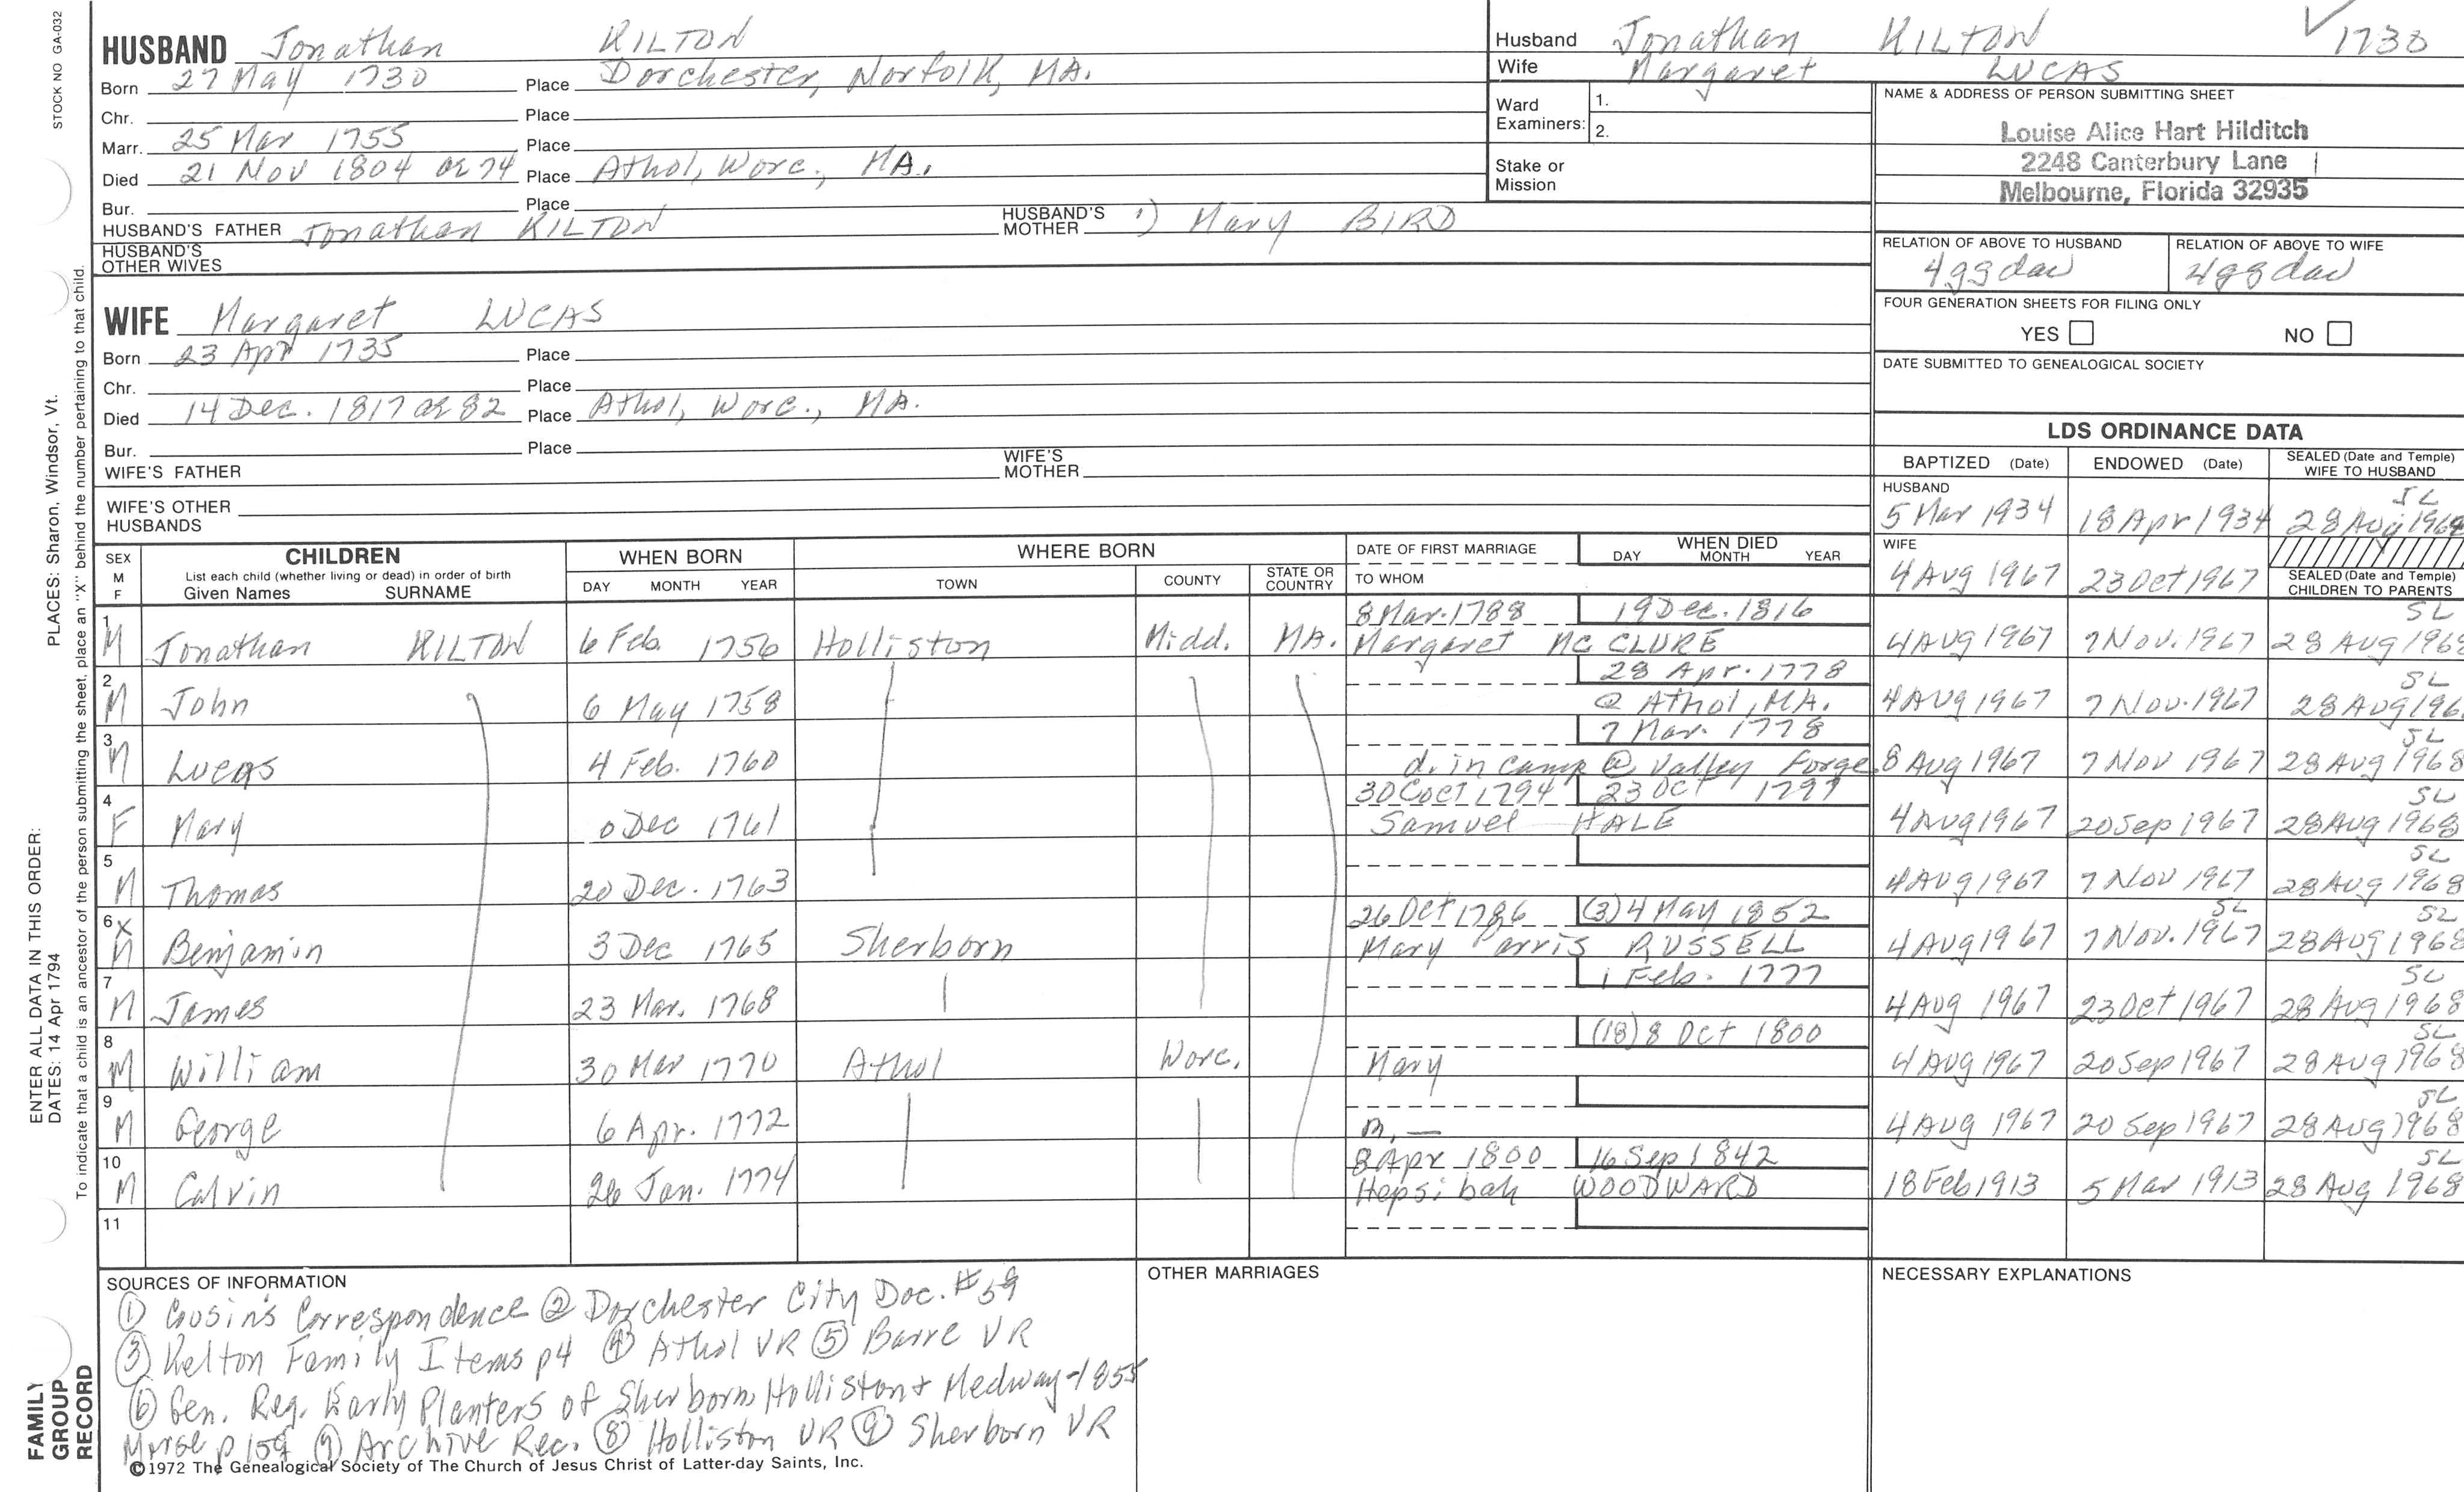 STOCK NO GA-032
HUSBAND Jonathan KILTON
Born 27 May 1730 Place Dorchester, Norfolk, MA.
Chr. Place
Marr. 25 Mar 1755 Place
Died 21 Nov 1804 ae 74 Place Athol, Worc., MA.
Bur. Place
HUSBAND'S FATHER Jonathan KILTON HUSBAND'S MOTHER 1) Mary BIRD
HUSBAND'S OTHER WIVES
WIFE Margaret LUCAS
Born 23 Apr 1735 Place
Chr. Place
Died 14 Dec. 1817 ae 82 Place Athol, Worc., MA.
Bur. Place
WIFE'S FATHER WIFE'S MOTHER
WIFE'S OTHER HUSBANDS
Husband Jonathan KILTON 1730
Wife Margaret LUCAS
Ward Examiners: 1.
2.
Stake or Mission
NAME & ADDRESS OF PERSON SUBMITTING SHEET
Louise Alice Hart Hilditch
2248 Canterbury Lane
Melbourne, Florida 32935
RELATION OF ABOVE TO HUSBAND RELATION OF ABOVE TO WIFE
4ggdau 4ggdau
FOUR GENERATION SHEETS FOR FILING ONLY
YES NO
DATE SUBMITTED TO GENEALOGICAL SOCIETY
LDS ORDINANCE DATA
BAPTIZED (Date) ENDOWED (Date) SEALED (Date and Temple) WIFE TO HUSBAND
HUSBAND SL
5 Mar 1934 18 Apr 1934 28 Aug 1968
WIFE
4 Aug 1967 23 Oct 1967 SEALED (Date and Temple) CHILDREN TO PARENTS
SEX M F CHILDREN List each child (whether living or dead) in order of birth Given Names SURNAME WHEN BORN DAY MONTH YEAR WHERE BORN TOWN COUNTY STATE OR COUNTRY DATE OF FIRST MARRIAGE TO WHOM WHEN DIED DAY MONTH YEAR
1 8 Mar. 1788 19 Dec. 1816 SL
M Jonathan KILTON 6 Feb. 1756 Holliston Midd. MA. Margaret McCLURE 4 Aug 1967 7 Nov. 1967 28 Aug 1968
2 28 Apr. 1778 SL
M John 6 May 1758 @ Athol, MA. 4 Aug 1967 7 Nov. 1967 28 Aug 196
3 7 Mar. 1778 SL
M Lucas 4 Feb. 1760 d. in camp @ Valley Forge 8 Aug 1967 7 Nov 1967 28 Aug 1968
4 30 Oct 1794 23 Oct 1797 SL
F Mary Dec 1761 Samuel HALE 4 Aug 1967 20 Sep 1967 28 Aug 1968
5 SL
M Thomas 20 Dec. 1763 4 Aug 1967 7 Nov 1967 28 Aug 1968
6 X 26 Oct 1786 (3) 4 May 1852 SL SL
M Benjamin 3 Dec 1765 Sherborn Mary Parris RUSSELL 4 Aug 1967 7 Nov. 1967 28 Aug 1968
7 1 Feb. 1777 SL
M James 23 Mar. 1768 4 Aug 1967 23 Oct 1967 28 Aug 1968
8 (18) 8 Oct 1800 SL
M William 30 Mar 1770 Athol Worc. Mary 4 Aug 1967 20 Sep 1967 28 Aug 1968
9 SL
M George 6 Apr. 1772 m. — 4 Aug 1967 20 Sep 1967 28 Aug 1968
10 8 Apr 1800 16 Sep 1842 SL
M Calvin 26 Jan. 1774 Hepsibah WOODWARD 18 Feb 1913 5 Mar 1913 28 Aug 1968
11
SOURCES OF INFORMATION
① Cousin's Correspondence ② Dorchester City Doc. #59
③ Kelton Family Items p4 ④ Athol VR ⑤ Barre VR
⑥ Gen. Reg. Early Planters of Sherborn, Holliston + Medway-1855
Morse p 159 ⑦ Archive Rec. ⑧ Holliston VR ⑨ Sherborn VR
OTHER MARRIAGES
NECESSARY EXPLANATIONS
©1972 The Genealogical Society of The Church of Jesus Christ of Latter-day Saints, Inc.
ENTER ALL DATA IN THIS ORDER:
DATES: 14 Apr 1794 PLACES: Sharon, Windsor, Vt.
To indicate that a child is an ancestor of the person submitting the sheet, place an "X" behind the number pertaining to that child.
FAMILY
GROUP
RECORD